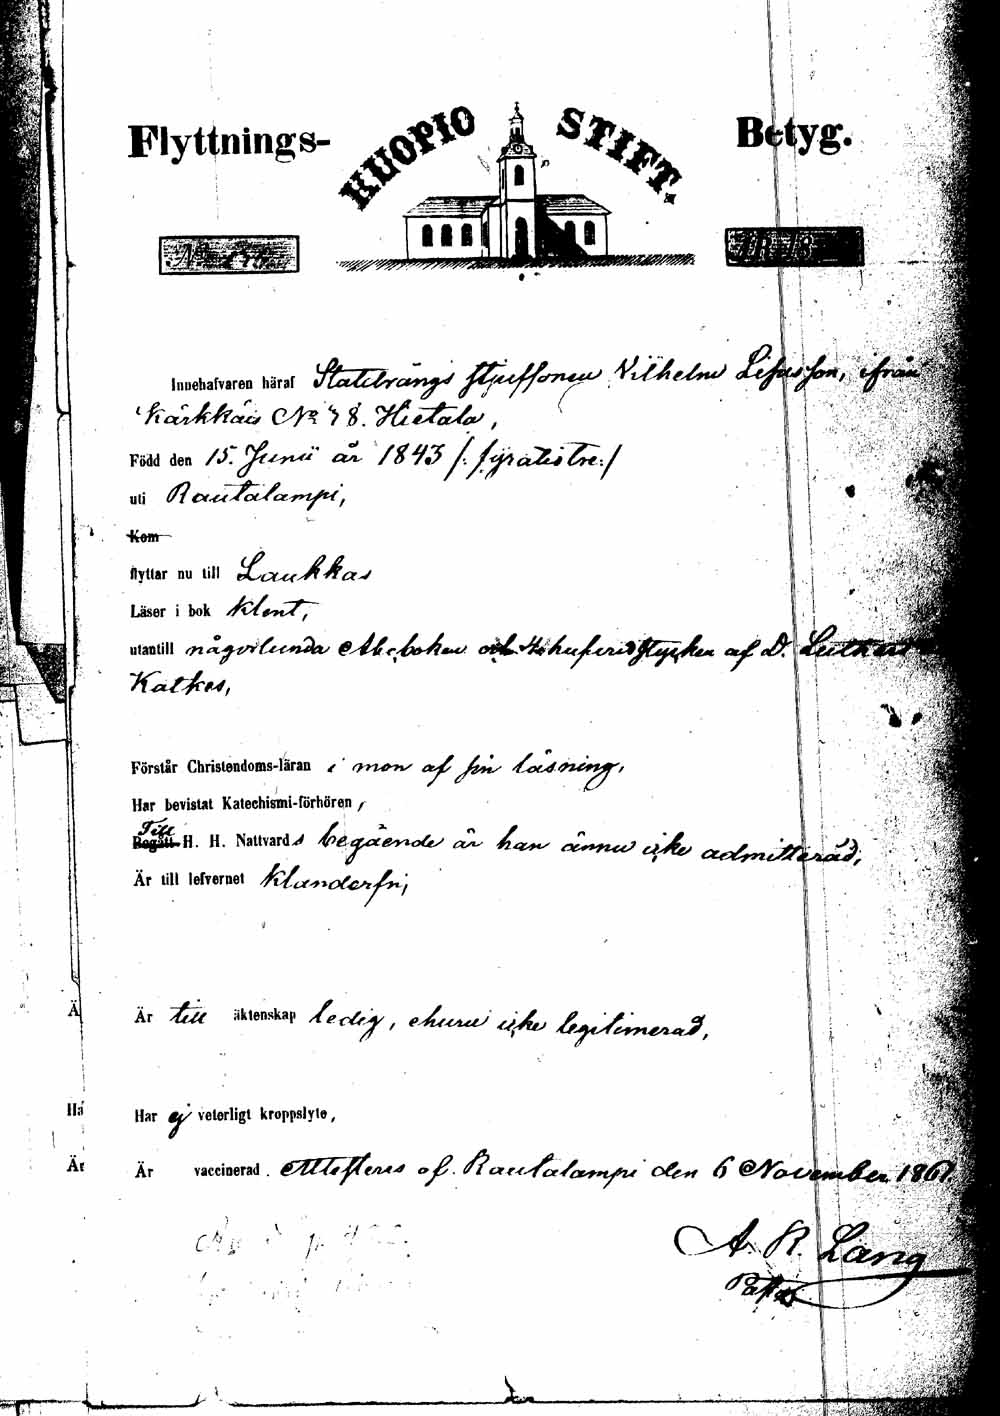 Flyttnings- KUOPIO STIFT. Betyg.
N:
Innehafvaren häraf Vilhelm ifrån
Kärkkäis No 78. Hietala,
Född den 15. Junii år 1843 /: fyratiotre:/
uti Rautalampi,
Kom
flyttar nu till Laukkas
Läser i bok klent,
utantill någorlunda Abcboken och stycken af D. Luthers
Katkes,
Förstår Christendoms-läran i mon af sin läsning,
Har bevistat Katechismi-förhören,
Till
Begått H. H. Nattvards begående är han ännu icke admitterad,
Är till lefvernet klanderfri,
Ä
Är till äktenskap ledig, ehuru icke legitimerad,
Ha
Har ej veterligt kroppslyte,
Är
Är vaccinerad. Attesteras af. Rautalampi den 6 November 1861.
A. R. Lang